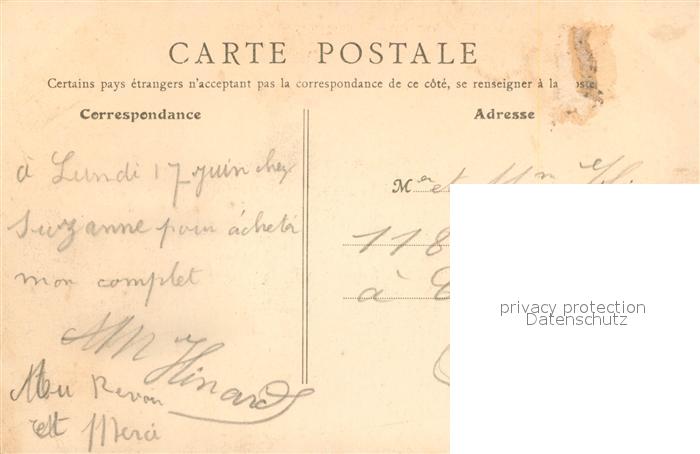 CARTE POSTALE
Certains pays étrangers n'acceptant pas la correspondance de ce côté, se renseigner à la Poste
Correspondance
Adresse
à Lundi 17 juin chez
Suzanne pour acheter
mon complet
Hinard
Au Revoir
et Merci
M et Mn
118
à
privacy protection
Datenschutz